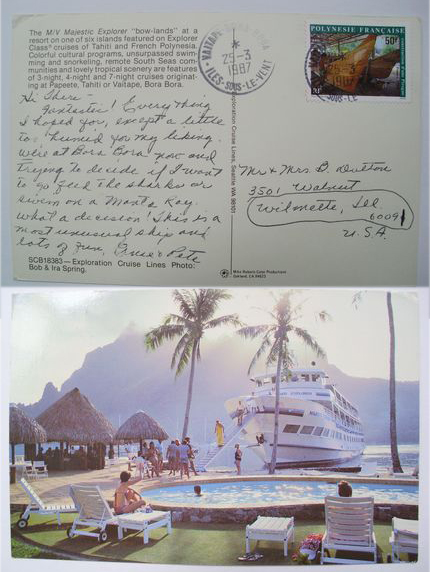 The M/V Majestic Explorer "bow-lands" at a
resort on one of six islands featured on Explorer
Class cruises of Tahiti and French Polynesia.
Colorful cultural programs, unsurpassed swim-
ming and snorkeling, remote South Seas com-
munities and lovely tropical scenery are features
of 3-night, 4-night and 7-night cruises originat-
ing at Papeete, Tahiti or Vaitape, Bora Bora.
Hi There -
Fantastic! Everything
I hoped for, except a little
too humid for my liking.
We're at Bora Bora now and
trying to decide if I want
to go feed the sharks or
swim on a Manta Ray.
What a decision! This is a
most unusual ship and
lots of fun.
SCB18383—Exploration Cruise Lines Photo:
Bob & Ira Spring.
Exploration Cruise Lines, Seattle WA 98101
Mike Roberts Color Productions
Oakland, CA 94623
VAITAPE
25-3
1987
ILES-SOUS-LE-VENT
POLYNESIE FRANÇAISE
50F
RF
SOUS-LE
Mr & Mrs B. Dutton
3501 Walnut
Wilmette, Ill
60091
U.S.A.